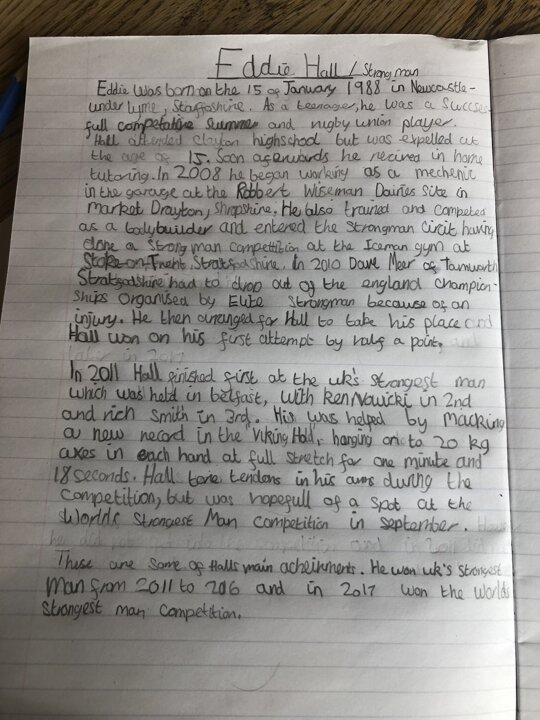 Eddie Hall / Strong man
Eddie was born on the 15 of January 1988 in Newcastle-
under lyme, Staffoshire. As a teenager, he was a Succses-
full competative Swmmer and rugby union player.
Hall attended clayton highschool but was expelled at
the age of 15. Soon afterwards he recived in home
tutoring. In 2008 he began working as a mechenic
in the garage at the Robbert Wiseman Dairies Site in
market Drayton, Shropshire. He also trained and competed
as a bodybuilder and entered the Strongman circit having
done a Strong man competition at the Iceman gym at
Stoke-on-Trent, Stratfordshire. In 2010 Dave Meer of Tamworth
Stratfordshire had to drop out of the england champion-
ships organised by Elite Strongman because of an
injury. He then arranged for Hall to take his place and
Hall won on his first attempt by half a point.
In 2011 Hall finished first at the uk's strongest man
which was held in belfast, with ken Nowicki in 2nd
and rich Smith in 3rd. His was helped by macking
a new record in the Viking Hold, hanging on to 20 kg
axes in each hand at full stretch for one minute and
18 seconds. Hall tore tendons in his arms during the
competition, but was hopefull of a spot at the
Worlds Strongest Man competition in september.
These are some of Halls main acheinments. He won uk's Strongest
Man from 2011 to 206 and in 2017 won the worlds
Strongest man competition.